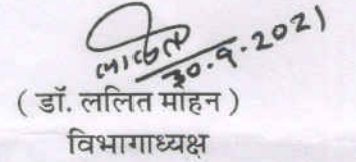 ललित
30.9.2021
( डॉ. ललित मोहन )
विभागाध्यक्ष